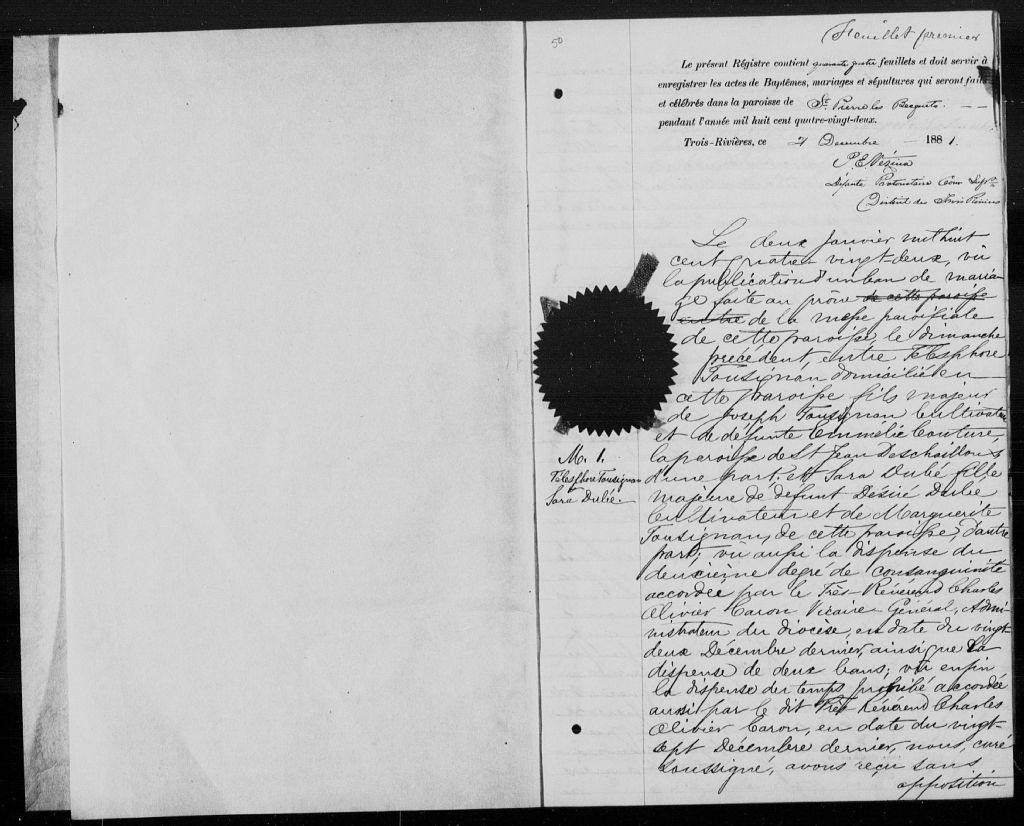 50
Feuillet premier
Le présent Régistre contient quarante quatre feuillets et doit servir à
enregistrer les actes de Baptêmes, mariages et sépultures qui seront faits
et célébrés dans la paroisse de St Pierre les Becquets
pendant l'année mil huit cent quatre-vingt-deux.
Trois-Rivières, ce 21 Decembre 1881.
P. E. Vézina
Députe Protonotaire Cour Supre
District des Trois Rivieres
Le deux Janvier mil huit
cent quatre-vingt-deux, vu
la publication d'un ban de maria
ge faite au prône de cette paroisse
entre de la messe paroissiale
de cette paroisse, le dimanche
précédent, entre Télesphore
Tousignan domicilié en
cette paroisse fils majeur
de Joseph Tousignan Cultivateur
et de défunte Emmélie Couture,
la paroisse de St Jean Deschaillons
d'une part; et Sara Dubé fille
majeure de défunt Désiré Dubé
Cultivateur et de Marguerite
Tousignan, de cette paroisse, d'autre
part; vu aussi la dispense du
deuxième degré de consanguinité
accordée par le Très Révérend Charles
Olivier Caron Vicaire-Général, Admi-
nistrateur du diocèse, en date du vingt-
deux Décembre dernier, ainsi que la
dispense de deux bans; vu enfin
la dispense du temps prohibé accordée
aussi par le dit Très Révérend Charles
Olivier Caron, en date du vingt-
sept Décembre dernier, nous, curé
soussigné, avons reçu sans
opposition
M. 1.
Télesphore Tousignan
&
Sara Dubé.